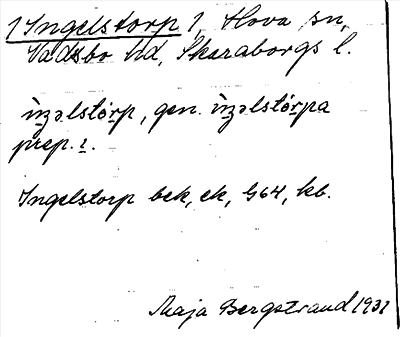 1 Ingelstorp 1, Hova sn,
Vadsbo hd, Skaraborgs l.
ìŋəlstórp, gen. ìŋəlstórpa
prep. ı.
Ingelstorp bek, ek, G64, kb.
Maja Bergstrand 1931